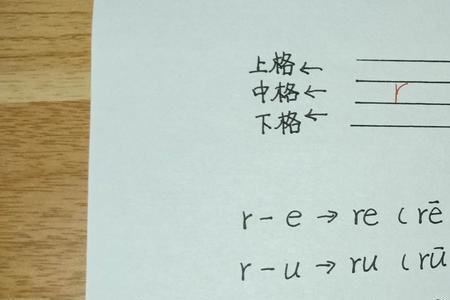 上格←
中格← r
下格←
r - e → re ( rē
r - u → ru ( rū